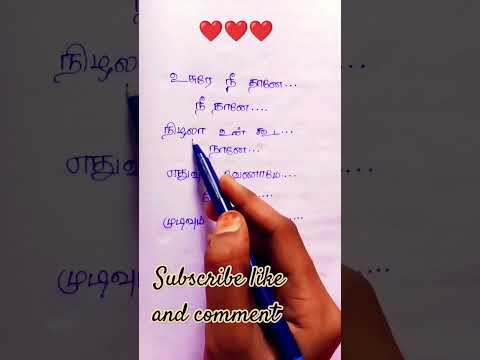 உசுரே நீ தானே...
நீ தானே....
நிழலா உன் கூட...
நானே...
எதுவு வேணாமே...
முடிவும்
Subscribe like
and comment